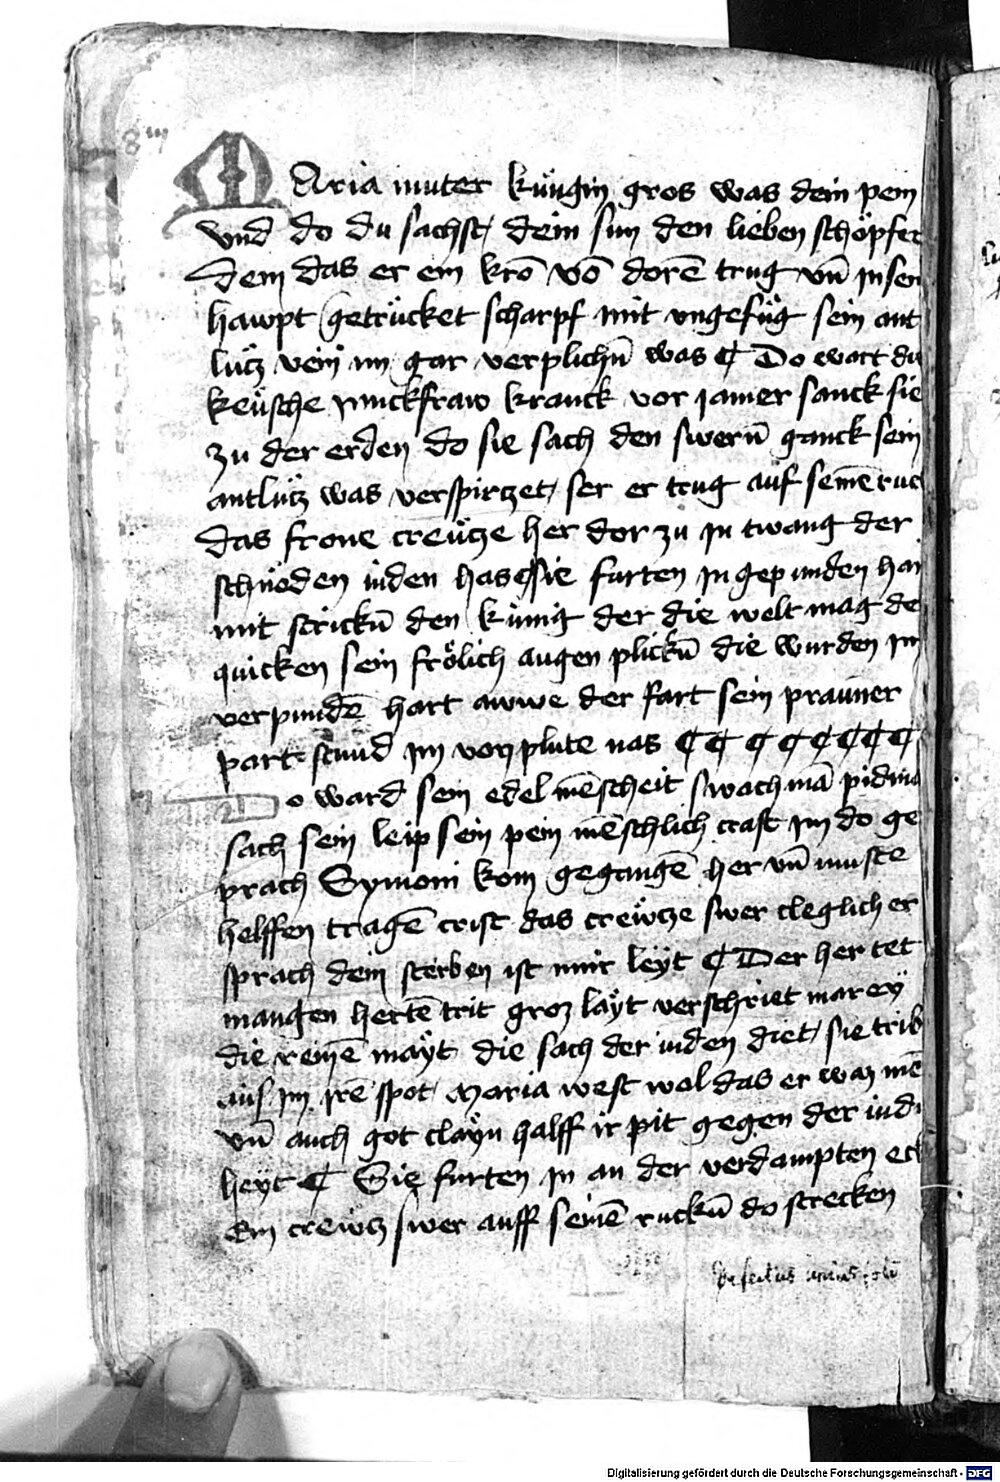 MAria muter küngin gros was dein pein
vnd do du sachst dein sun den lieben schöpfer
dein das er ein krō vō dorē trug vn̄ in sein
hawpt getrücket scharpf mit vngefüg sein ant
lücz vein im gar verplichn̄ was ¶ Do wart die
keüsche Junckfraw kranck vor jamer sanck sie
zu der erden do sie sach den swern̄ ganck sein
antlücz was verspirczet ser er trug auf seinē ruc
das frone creücze her dor zu in twang der
schnöden iuden has ¶ Sie furten in gepunden har
mit strickn̄ den künig der die welt mag der
quicken sein frölich augen plickn̄ die wurden im
verpundē hart awwe der fart sein prauner
part stund im von plute nas ¶ ¶ ¶ ¶ ¶ ¶ ¶ ¶
Do ward sein edel mēscheit swach mā pidma
sach sein leip sein pein mēschlich craft im do ge
prach Symoni kom gegangē her vn̄ muste
helffen tragē crist das crewcze swer cleglich er
sprach dein sterben ist mir leyt ¶ Der her tet
mangen hertē trit groz layt verschriet marey
die reinē mayt die sach der iuden diet sie trib
aus im irē spot Maria west wol das er waz mē
vn̄ auch got clayn halff ir pit gegen der iudi
heyt ¶ Sie furten in an der verdampten eck
Ein crewcz swer auff seinē ruckn̄ do strecken
defectus unius folii
Digitalisierung gefördert durch die Deutsche Forschungsgemeinschaft - DFG